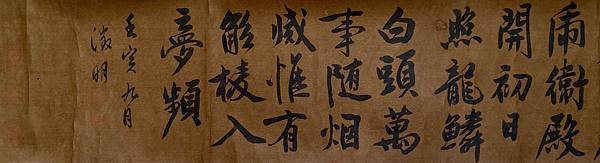 乕衛殿
開初日
照龍鱗
白頭萬
事随烟
滅惟有
觚棱入
夢頻
壬寅九月
徵明